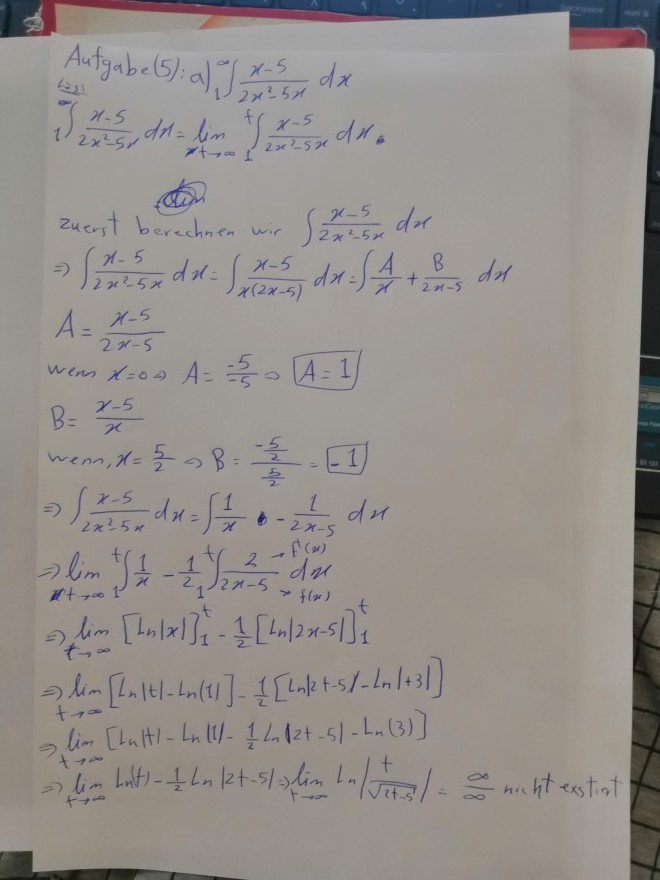 Aufgabe(5): a) ₁∫^∞ (x-5)/(2x²-5x) dx
₁∫^∞ (x-5)/(2x²-5x) dx = lim t→∞ ₁∫^t (x-5)/(2x²-5x) dx.
zuerst berechnen wir ∫ (x-5)/(2x²-5x) dx
⇒ ∫ (x-5)/(2x²-5x) dx = ∫ (x-5)/(x(2x-5)) dx = ∫ A/x + B/(2x-5) dx
A = (x-5)/(2x-5)
wenn x=0 ⇒ A = -5/-5 ⇒ A = 1
B = (x-5)/x
wenn, x = 5/2 ⇒ B = (-5/2)/(5/2) = -1
⇒ ∫ (x-5)/(2x²-5x) dx = ∫ 1/x - 1/(2x-5) dx
⇒ lim t→∞ ₁∫^t 1/x - 1/2 ₁∫^t 2/(2x-5) dx → f'(x) → f(x)
⇒ lim t→∞ [Ln|x|]₁^t - 1/2 [Ln|2x-5|]₁^t
⇒ lim t→∞ [Ln|t| - Ln(1)] - 1/2 [Ln|2t-5| - Ln|+3|]
⇒ lim t→∞ [Ln|t| - Ln|1| - 1/2 Ln|2t-5| - Ln(3)]
⇒ lim t→∞ Ln(t) - 1/2 Ln|2t-5| ⇒ lim t→∞ Ln|t/√(2t-5)| = ∞/∞ nicht exstiert